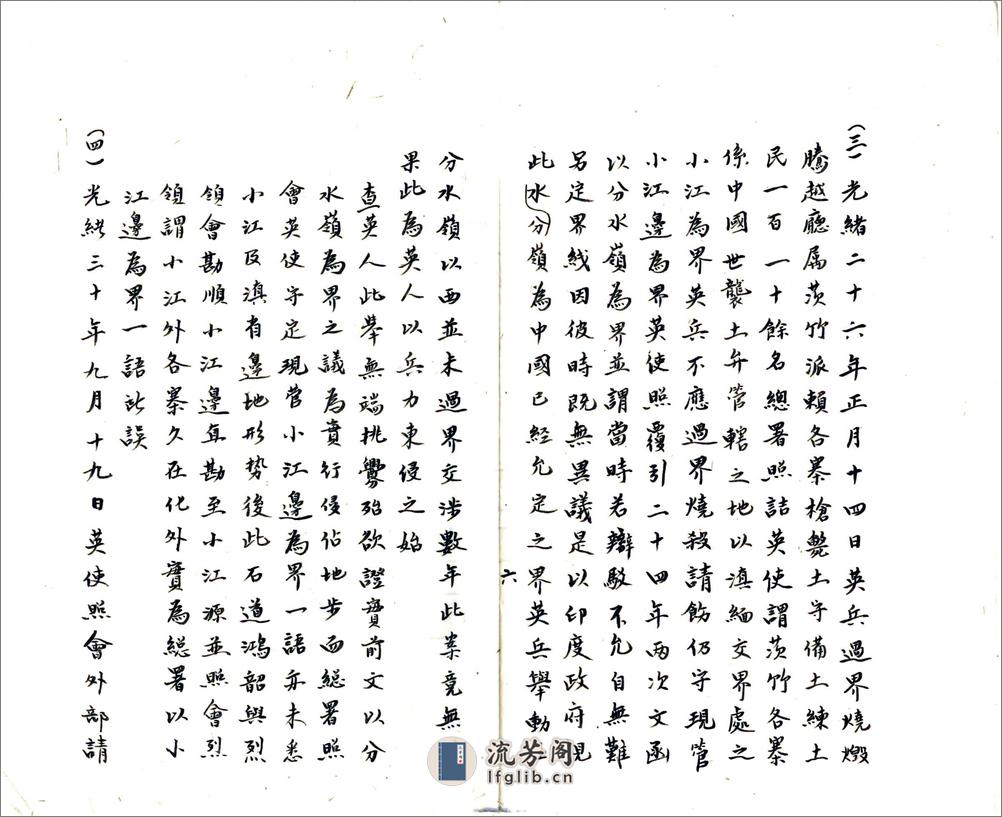 (三)光緒二十六年正月十四日英兵過界燒燬
騰越廳属茨竹派賴各寨槍斃土守備土練土
民一百一十餘名總署照詰英使謂茨竹各寨
係中國世襲土弁管轄之地以滇緬交界處之
小江為界英兵不應過界燒殺請飭仍守現管
小江邊為界英使照覆引二十四年两次文函
以分水嶺為界並謂當時若辯駁不允自無難
另定界线因彼時既無異議是以印度政府見
此水分嶺為中國已經允定之界英兵舉動在
六
分水嶺以西並未過界交涉數年此案竟無
果此為英人以兵力東侵之始
查英人此舉無端挑釁殆欲證實前文以分
水嶺為界之議為實行侵佔地步而總署照
會英使守定現管小江邊為界一語亦未悉
小江及滇省邊地形势後此石道鴻韶與烈
領會勘順小江邊直勘至小江源並照會烈
領謂小江外各寨久在化外實為総署以小
江邊為界一語所誤
(四)光緒三十年九月十九日英使照會外部請
流芳阁
lfglib.cn